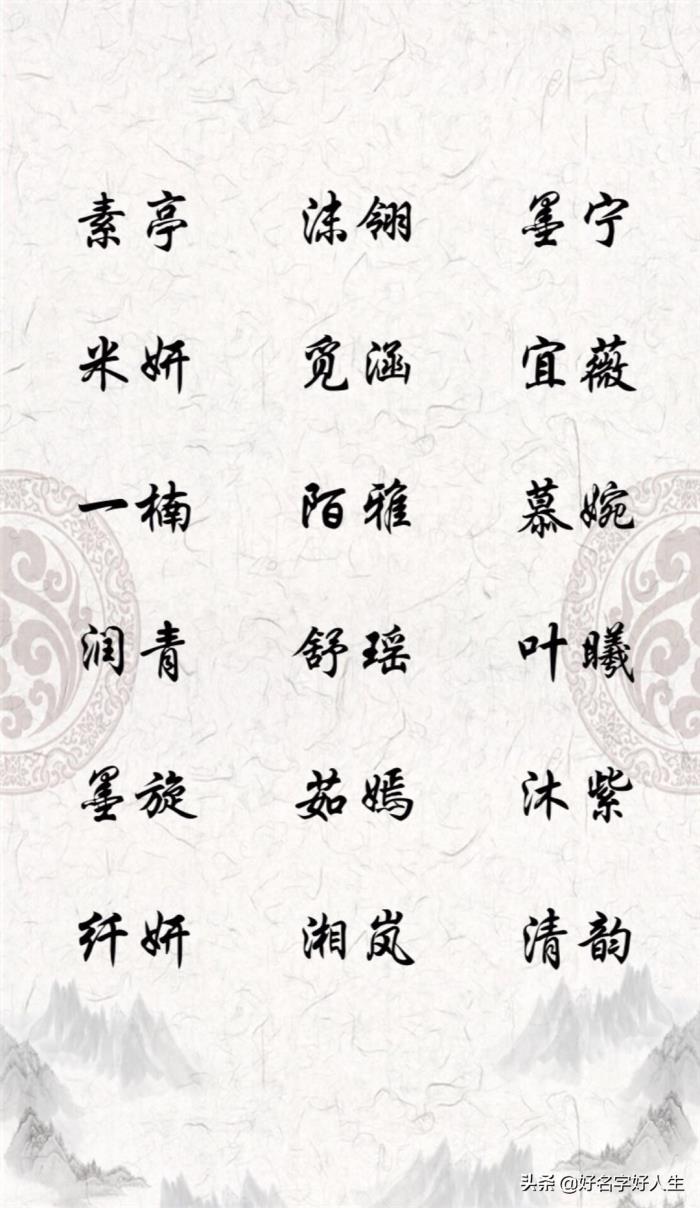 素亭 沫翎 墨宁
米妍 觅涵 宜薇
一楠 陌雅 慕婉
润青 舒瑶 叶曦
墨旋 茹嫣 沐紫
纤妍 湘岚 清韵
头条 @好名字好人生